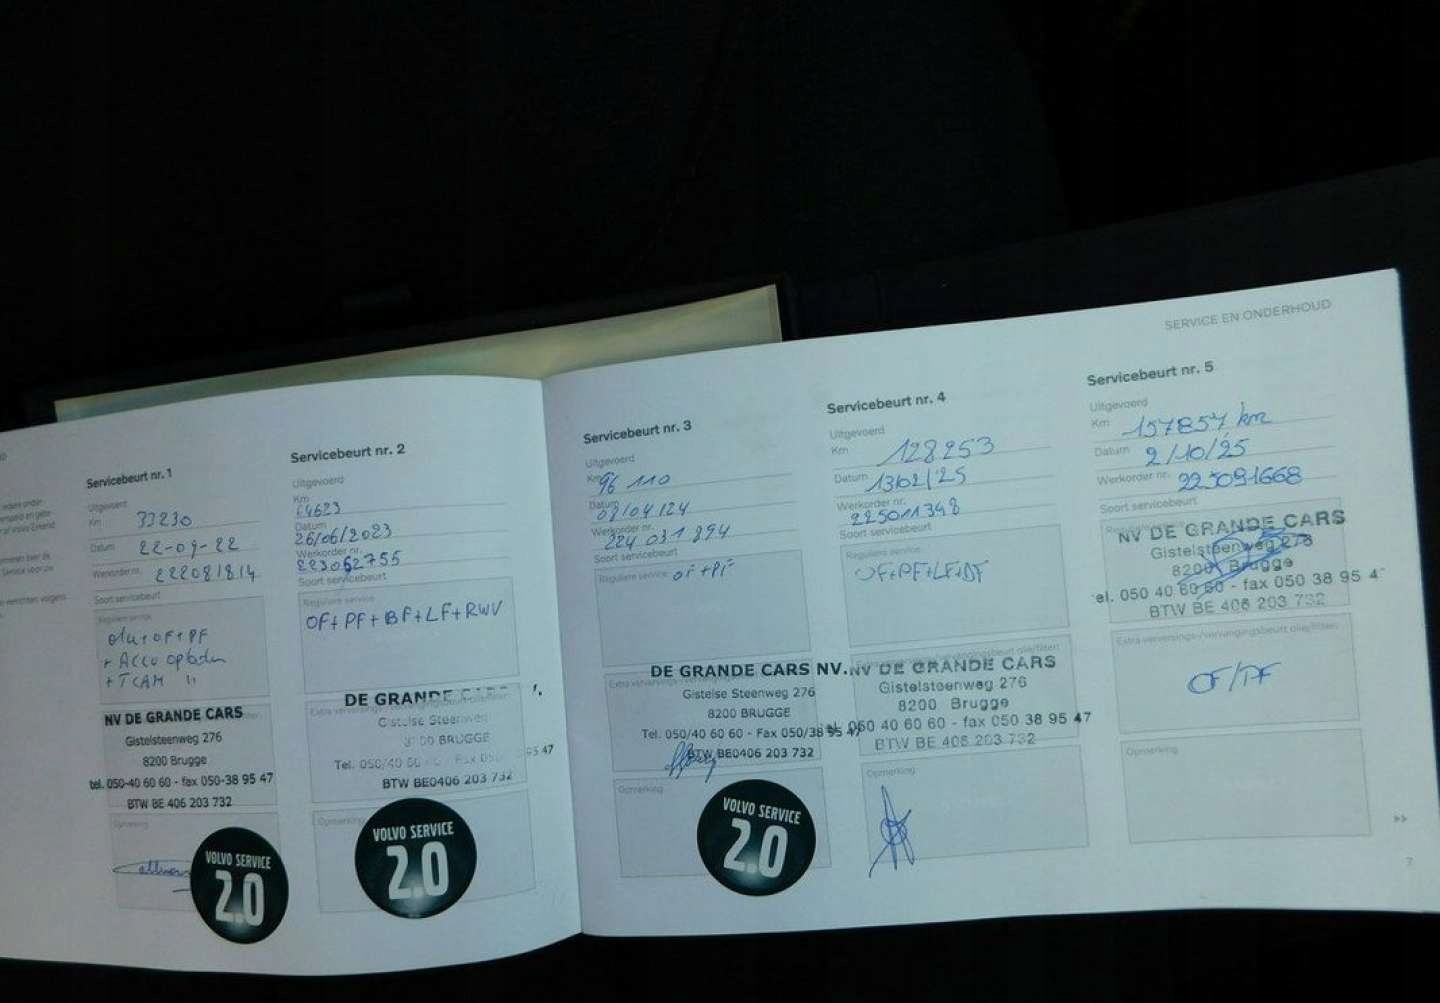 SERVICE EN ONDERHOUD
Servicebeurt nr. 1
Uitgevoerd
Km 33230
Datum 22-09-22
Werkorder nr. 222081814
Soort servicebeurt
Reguliere service
olu + OF + PF
+ Accu opladen
+ TCAM
NV DE GRANDE CARS
Gistelsteenweg 276
8200 Brugge
tel. 050-40 60 60 - fax 050-38 95 47
BTW BE 406 203 732
Opmerking
VOLVO SERVICE
2.0
Servicebeurt nr. 2
Uitgevoerd
Km
64623
Datum
26/06/2023
Werkorder nr.
223062755
Soort servicebeurt
Reguliere service
OF+PF+BF+LF+RWV
DE GRANDE
Gistelse Steenweg
BRUGGE
Tel. 050/40 60 Fax 050/ 95 47
BTW BE0406 203 732
Opmerking
VOLVO SERVICE
2.0
Servicebeurt nr. 3
Uitgevoerd
Km 96 110
Datum
08/04/24
Werkorder nr.
224 031 894
Soort servicebeurt
Reguliere service OF+PF
DE GRANDE CARS NV.
Gistelse Steenweg 276
8200 BRUGGE
Tel. 050/40 60 60 - Fax 050/38 95 47
BTW BE0406 203 732
Opmerking
VOLVO SERVICE
2.0
Servicebeurt nr. 4
Uitgevoerd
Km 128253
Datum 13/02/25
Werkorder nr.
225011348
Soort servicebeurt
Reguliere service
OF+PF+LF+DF
NV DE GRANDE CARS
Gistelsteenweg 276
8200 Brugge
tel. 050 40 60 60 - fax 050 38 95 47
BTW BE 406 203 732
Opmerking
Servicebeurt nr. 5
Uitgevoerd
Km 157857 km
Datum 2/10/25
Werkorder nr. 225091668
Soort servicebeurt
NV DE GRANDE CARS
Gistelsteenweg 276
8200 Brugge
tel. 050 40 60 60 - fax 050 38 95 4
BTW BE 406 203 732
Extra verversings-/vervangingsbeurt olie/filters
OF/PF
Opmerking
7